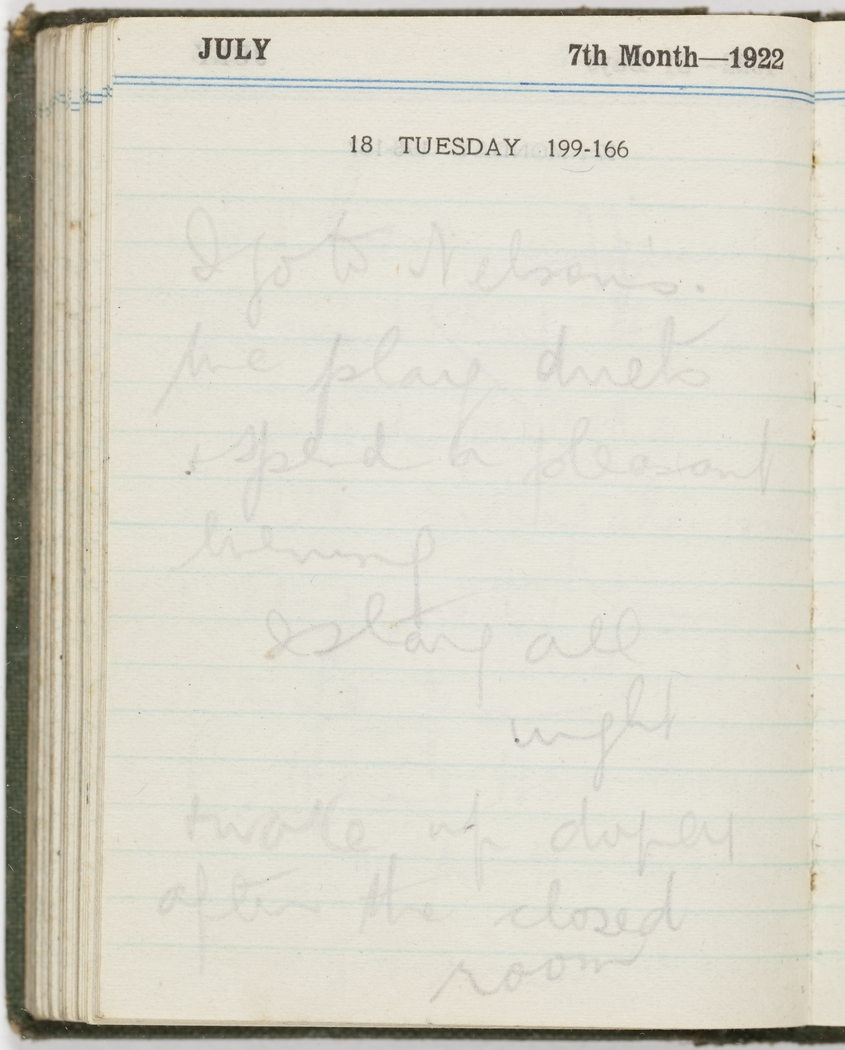 JULY 7th Month—1922
18 TUESDAY 199-166
I go to Nelson's.
We play duets
+ spend a pleasant
evening
I stay all
night
+ woke up dopey
after the closed
room